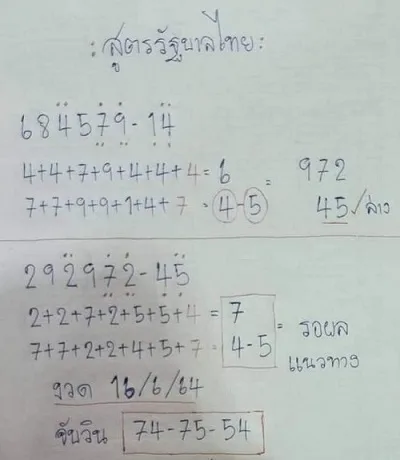 : สูตรรัฐบาลไทย :
684579-14
4+4+7+9+4+4+4=6 = 972
7+7+9+9+1+4+7=4-5 45/ล่าง
292972-45
2+2+7+2+5+5+4=7
7+7+2+2+4+5+7=4-5 = รอผล
แนวทาง
งวด 16/6/64
จับวิน 74-75-54